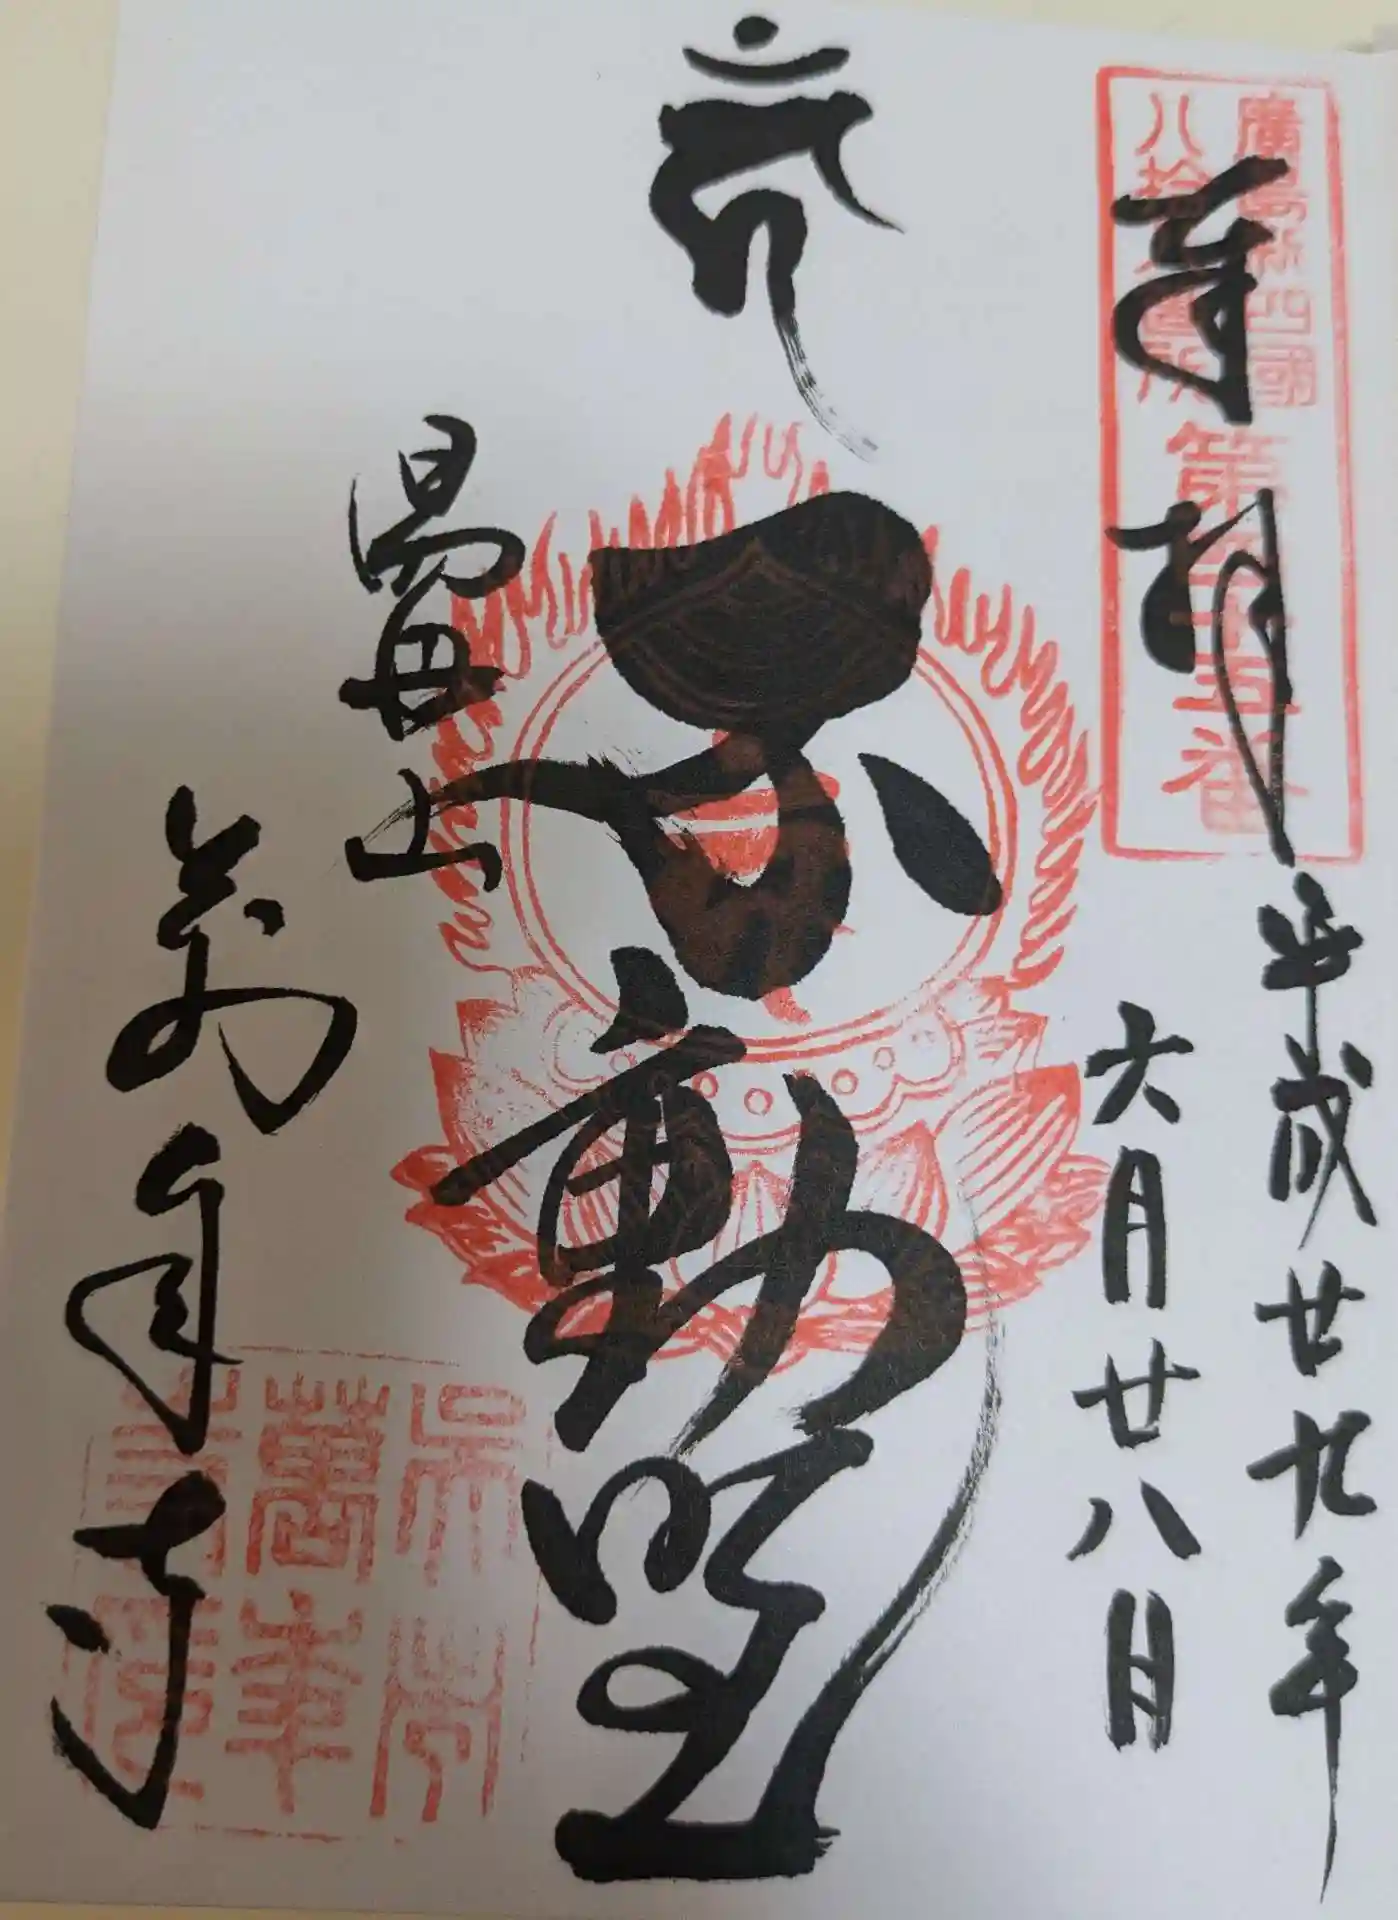 奉拝
廣島新四國
八拾八ヶ所
第三十五番
平成廿九年
六月廿八日
不動明王
萬年寺